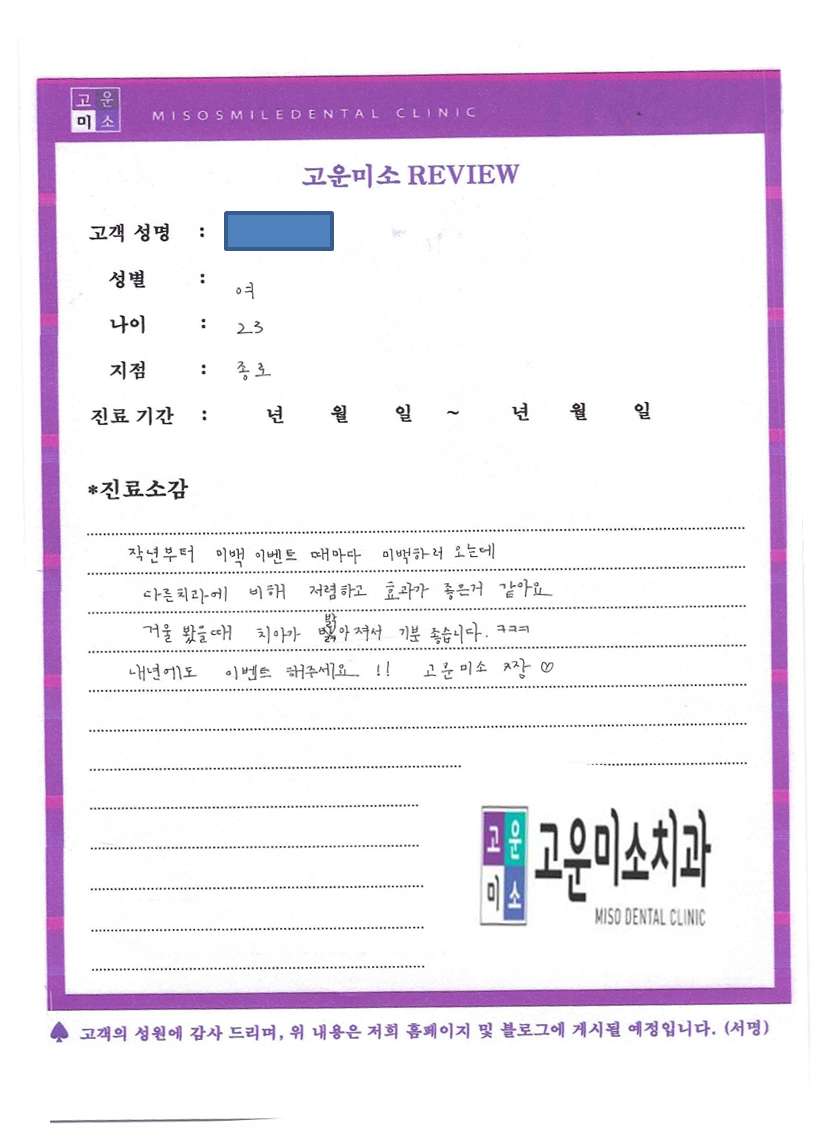 고운
미소
MISOSMILEDENTAL CLINIC
고운미소 REVIEW
고객 성명 :
성별 : 여
나이 : 23
지점 : 종로
진료 기간 : 년 월 일 ~ 년 월 일
*진료소감
작년부터 미백 이벤트 때마다 미백하러 오는데
다른치과에 비해 저렴하고 효과가 좋은거 같아요
거울 봤을때 치아가 밝아져서 기분 좋습니다. ㅋㅋㅋ
내년에도 이벤트 해주세요 !! 고운미소 짱 ♡
고운
미소
고운미소치과
MISO DENTAL CLINIC
♠ 고객의 성원에 감사 드리며, 위 내용은 저희 홈페이지 및 블로그에 게시될 예정입니다. (서명)